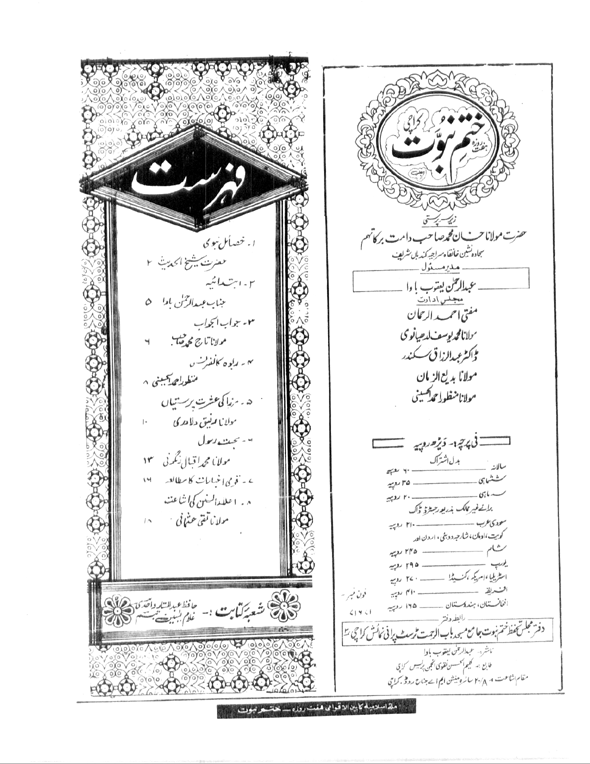 ہفت روزہ
ختم نبوّت
کراچی
زیر سرپرستی
حضرت مولانا خان محمد صاحب دامت برکاتہم
سجادہ نشین خانقاہ سراجیہ کندیاں شریف
مدیر مسئول
عبدالرحمٰن یعقوب باوا
مجلس ادارت
مفتی احمد الرحمان
مولانا محمد یوسف لدھیانوی
ڈاکٹر عبدالرزاق سکندر
مولانا بدیع الزمان
مولانا منظور احمد الحسینی
فی پرچہ ۔ ڈیڑھ روپیہ
بدل اشتراک
سالانہ — ۶۰ روپیہ
ششماہی — ۳۵ روپیہ
سہ ماہی — ۲۰ روپیہ
برائے غیر ممالک بذریعہ رجسٹرڈ ڈاک
سعودی عرب — ۲۱۰ روپیہ
کویت، اومان، شارجہ، دوبئی، اردن اور
شام — ۲۴۵ روپیہ
یورپ — ۲۹۵ روپیہ
آسٹریلیا، امریکہ، کنیڈا — ۲۷۰ روپیہ
افریقہ — ۴۱۰ روپیہ
افغانستان، ہندوستان — ۱۶۵ روپیہ
فون نمبر
رابطہ دفتر
دفتر مجلس تحفظ ختم نبوت جامع مسجد باب الرحمت ٹرسٹ پرانی نمائش کراچی
ناشر :- عبدالرحمٰن یعقوب باوا
طابع :- کلیم الحسن نقوی انجمن پریس کراچی
مقام اشاعت ۲۰/۸ سائرہ مینشن ایم اے جناح روڈ، کراچی
فہرست
۱۔ خصائل نبوی
حضرت شیخ الحدیث ۲
۲۔ ابتدائیہ
جناب عبدالرحمٰن باوا ۵
۳۔ جواب الجواب
مولانا تاج محمد صاحب ۶
۴۔ ربوہ کانفرنس
منظور احمد الحسینی ۸
۵۔ مرزا کی عشرت پرستیاں
مولانا ۱۰
۶۔ محبت رسول
مولانا محمد اقبال رنگونی ۱۳
۷۔ قومی اخبارات کا مطالعہ ۱۶
۸۔ اعلاء السنن کی اشاعت
مولانا تقی عثمانی ۱۸
شعبۂ کتابت :-
حافظ عبدالستار واحدی
ملت اسلامیہ کا بین الاقوامی ہفت روزہ — ختم نبوت